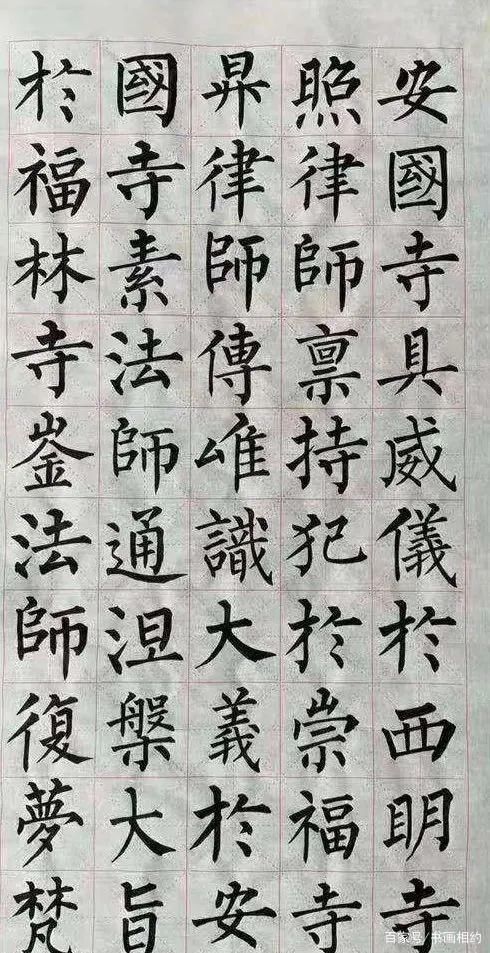 安國寺具威儀於西明寺
照律師禀持犯於崇福寺
昇律師傳唯識大義於安
國寺素法師通涅槃大旨
於福林寺崟法師復夢梵
百家号/书画相约